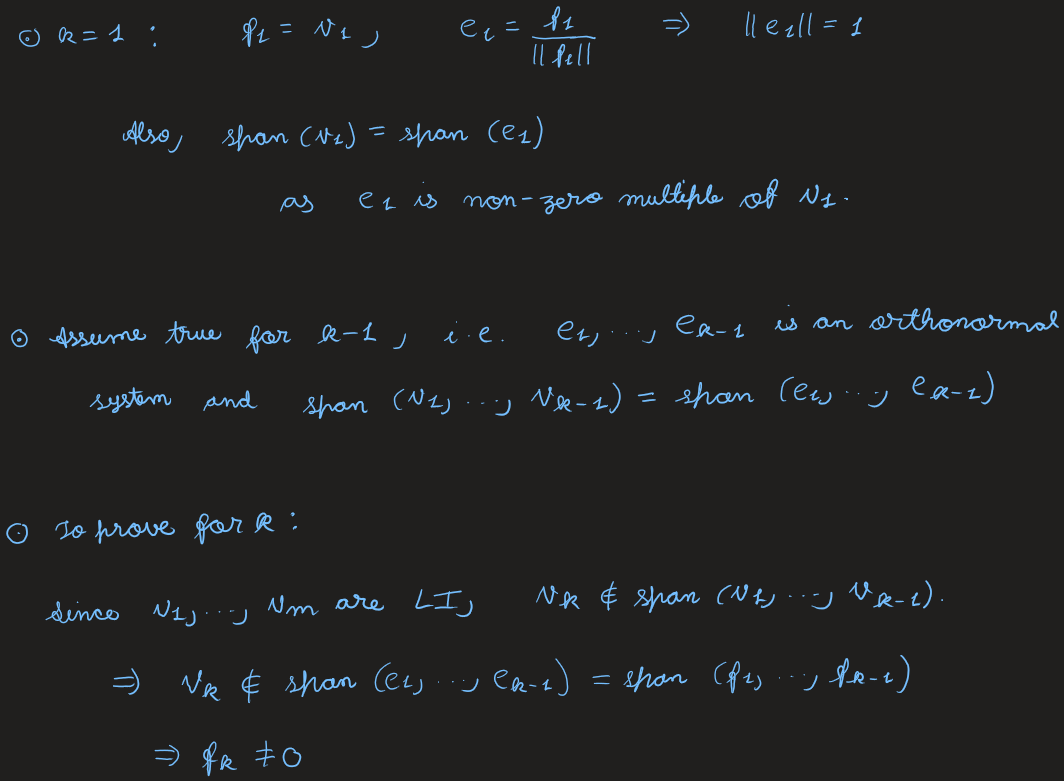 ⊙ k = 1 : f₁ = v₁, e₁ = f₁ / ||f₁|| ⇒ ||e₁|| = 1
Also, span (v₁) = span (e₁)
as e₁ is non-zero multiple of v₁.
⊙ Assume true for k-1, i.e. e₁, ..., eₖ₋₁ is an orthonormal
system and span (v₁, ..., vₖ₋₁) = span (e₁, ..., eₖ₋₁)
⊙ To prove for k :
Since v₁, ..., vₘ are LI, vₖ ∉ span (v₁, ..., vₖ₋₁).
⇒ vₖ ∉ span (e₁, ..., eₖ₋₁) = span (f₁, ..., fₖ₋₁)
⇒ fₖ ≠ 0